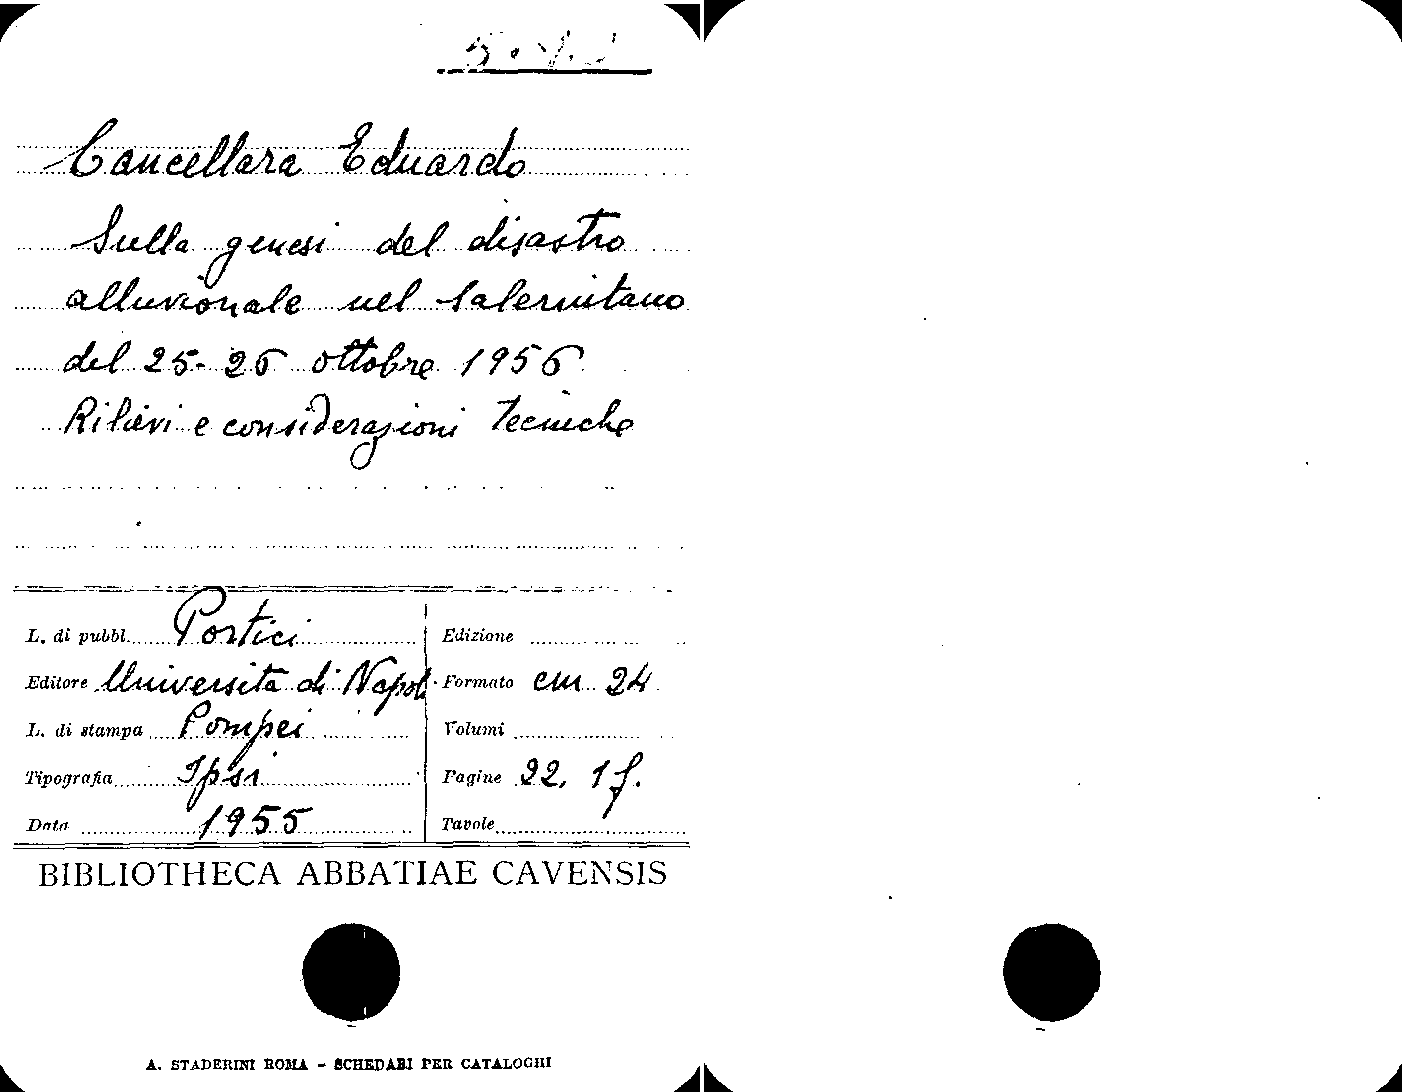 Cancellara Eduardo
Sulla genesi del disastro
alluvionale nel Salernitano
del 25-26 ottobre 1956
Rilievi e considerazioni tecniche
L. di pubbl. Portici
Edizione
Editore Università di Napoli
Formato cm 24
L. di stampa Pompei
Volumi
Tipografia Ipsi
Pagine 22, 1 f.
Data 1955
Tavole
BIBLIOTHECA ABBATIAE CAVENSIS
A. STADERINI ROMA - SCHEDARI PER CATALOGHI